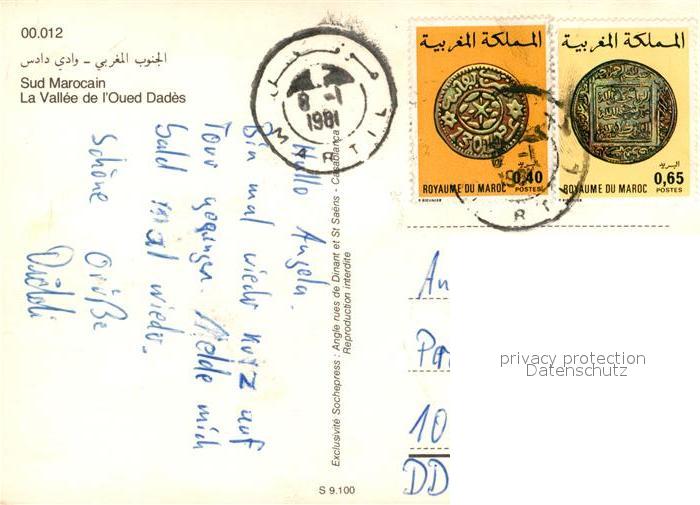 00.012
الجنوب المغربي - وادي دادس
Sud Marocain
La Vallée de l'Oued Dadès
8 -1
1981
MARTIL
المملكة المغربية
البريد
0,40
ROYAUME DU MAROC POSTES
المملكة المغربية
البريد
0,65
ROYAUME DU MAROC POSTES
Hallo Angela.
Bin mal wieder kurz auf
Tour gegangen. Melde mich
bald mal wieder.
Schöne Grüße
Exclusivité Sochepress : Angle rues de Dinant et St Saëns - Casablanca
Reproduction interdite
An
10
DD
privacy protection
Datenschutz
S 9.100